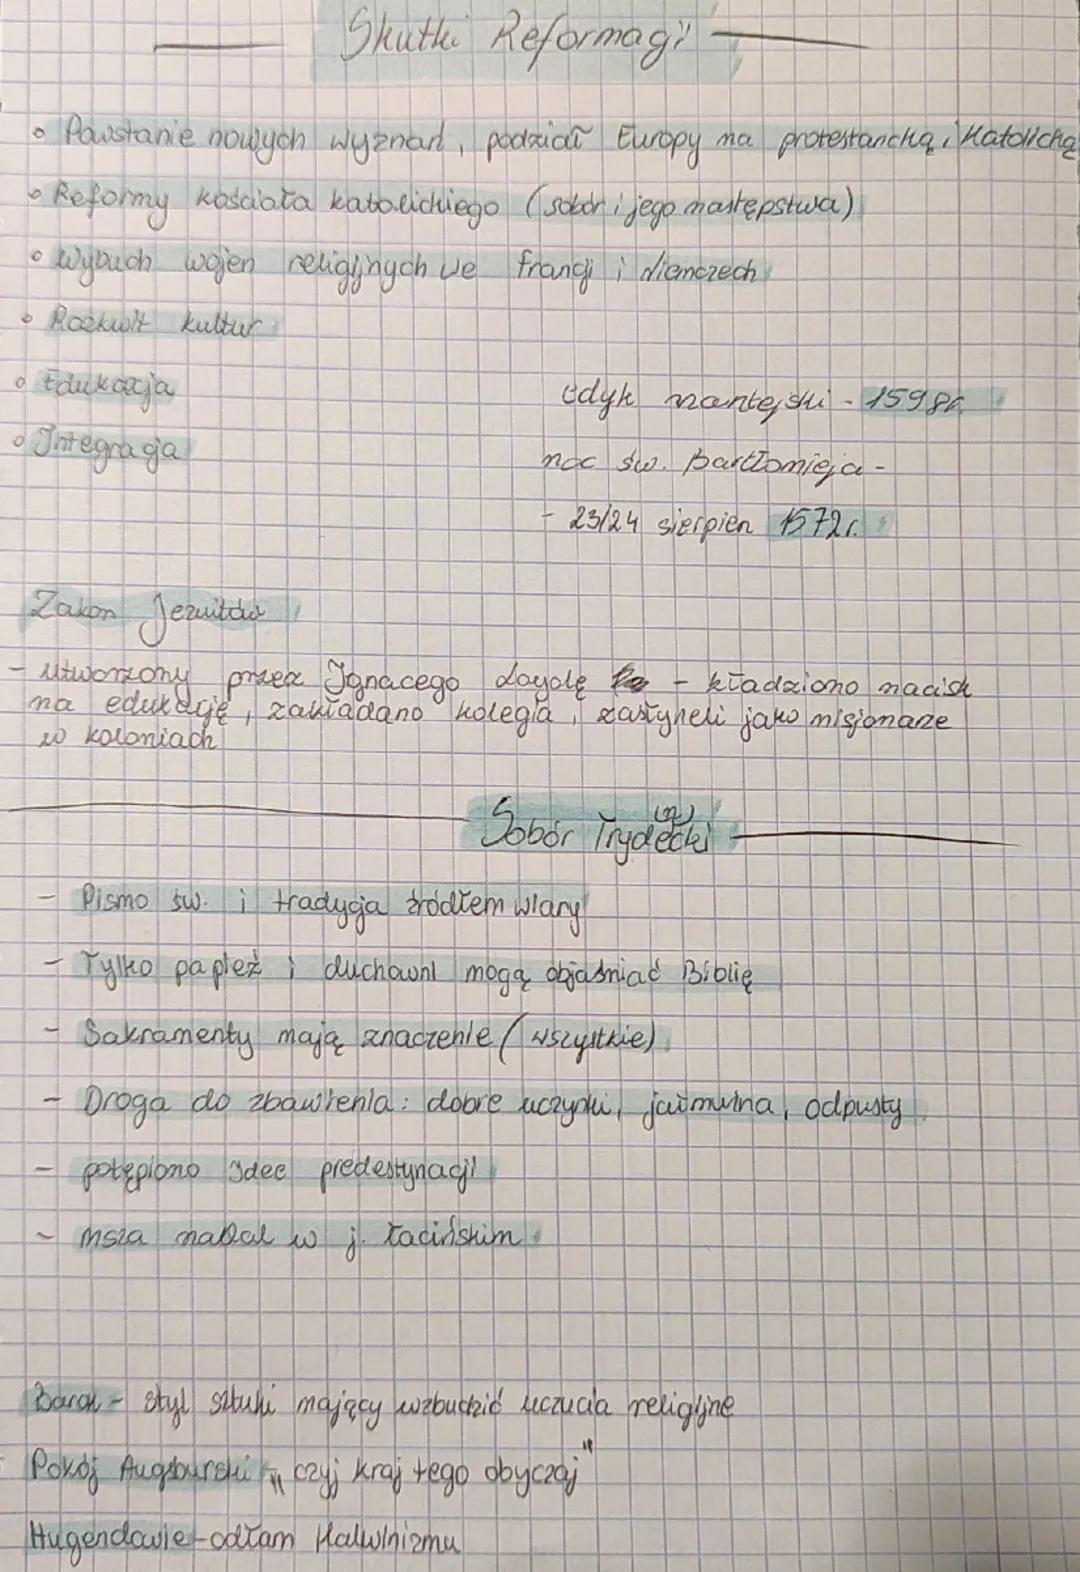 Skutki Reformacji
Powstanie nowych wyznań, podział Europy na protestancką i Katolicką
Reformy kościoła katolickiego (sobór i jego następstwa)
Wybuch wojen religijnych we francji i Niemczech
Rozkwit kultur
Edukacja
Integracja
edyk nantejski - 1598r.
noc św. Bartłomieja -
- 23/24 sierpien 1572r.
Zakon Jezuitów
- utworzony przez Ignacego Loyolę - kładziono nacisk
na edukację, zakładano kolegia, zasłyneli jako misjonaze
w koloniach
(n)
Sobór Trydecki
- Pismo św. i tradycja źródłem wiary
- Tylko papież i duchowni mogą objaśniać Biblię
- Sakramenty mają znaczenie (wszystkie)
- Droga do zbawienia: dobre uczynki, jałmużna, odpusty
- potępiono Idee predestynacji
- msza nadal w j. łacińskim
Barok - styl sztuki mający wzbudzić uczucia religijne
Pokój Augsburski „czyj kraj tego obyczaj"
Hugendowie - odłam Kalwinizmu